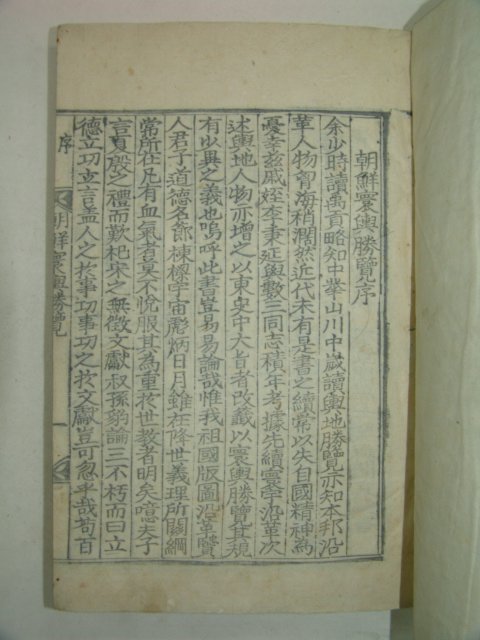 朝鮮寰輿勝覽序
余少時讀禹貢略知中華山川中歲讀輿地勝覽亦知本邦沿
革人物曾海稍濶然近代未有是書之續常以失自國精神為
憂幸玆戚姪李秉延與數三同志積年考據先續寰宇沿革次
述輿地人物亦增之以東史中大旨者改籤以寰輿勝覽其規
有少異之義也嗚呼此書豈易易論哉惟我祖國版圖沿革賢
人君子道德名節棟樑宇宙彪炳日月雖在降世義理所關綱
常所在凡有血氣者莫不悅服其為重於世教者明矣噫夫子
言夏殷之禮而歎杞宋之無徵文獻叔孫豹論三不朽而曰立
德立功立言盖人之於事功事功之於文獻豈可忽乎哉苟百
序
朝鮮寰輿勝覽